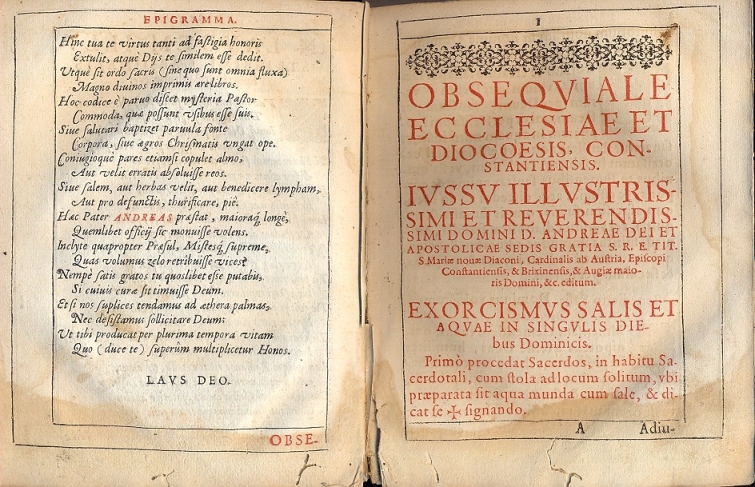 EPIGRAMMA.
Hinc tua te virtus tanti ad fastigia honoris
Extulit, atque Dijs te similem esse dedit.
Vtque sit ordo sacris (sine quo sunt omnia fluxa)
Magno diuinos imprimis ære libros.
Hoc codice è paruo discet mysteria Pastor
Commoda, quæ possunt vsibus esse suis.
Siue salutari baptizet paruula fonte
Corpora, siue ægros Chrismatis vngat ope.
Coniugioque pares etiamsi copulet almo,
Aut velit erratu absoluisse reos.
Siue salem, aut herbas velit, aut benedicere lympham,
Aut pro defunctis, thurificare, piè.
Hæc Pater ANDREAS præstat, maioraque longè,
Quemlibet officij sic monuisse volens.
Inclyte quapropter Præsul, Mistesque supreme,
Quas volumus zelo retribuisse vices?
Nempè satis gratos tu quoslibet esse putabis,
Si cuiuis curæ sit timuisse Deum.
Et si nos suplices tendamus ad æthera palmas,
Nec desistamus sollicitare Deum:
Vt tibi producat per plurima tempora vitam
Quo (duce te) superûm multiplicetur Honos.
LAVS DEO.
OBSE-
1
OBSEQVIALE
ECCLESIAE ET
DIOCOESIS, CON-
STANTIENSIS.
IVSSV ILLVSTRIS-
SIMI ET REVERENDIS-
SIMI DOMINI D. ANDREAE DEI ET
APOSTOLICAE SEDIS GRATIA S. R. E. TIT.
S. Mariæ nouæ Diaconi, Cardinalis ab Austria, Episcopi
Constantiensis, & Brixinensis, & Augiæ maio-
ris Domini, &c. editum.
EXORCISMVS SALIS ET
AQVAE IN SINGVLIS DIE-
bus Dominicis.
Primò procedat Sacerdos, in habitu Sa-
cerdotali, cum stola ad locum solitum, vbi
præparata sit aqua munda cum sale, & di-
cat se ✠ signando.
A Adiu-